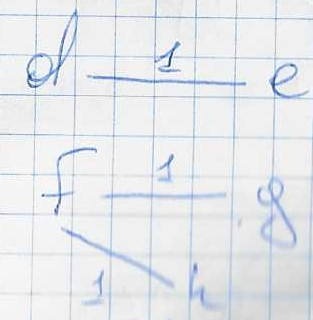 d 1 e
f 1 g
1 h